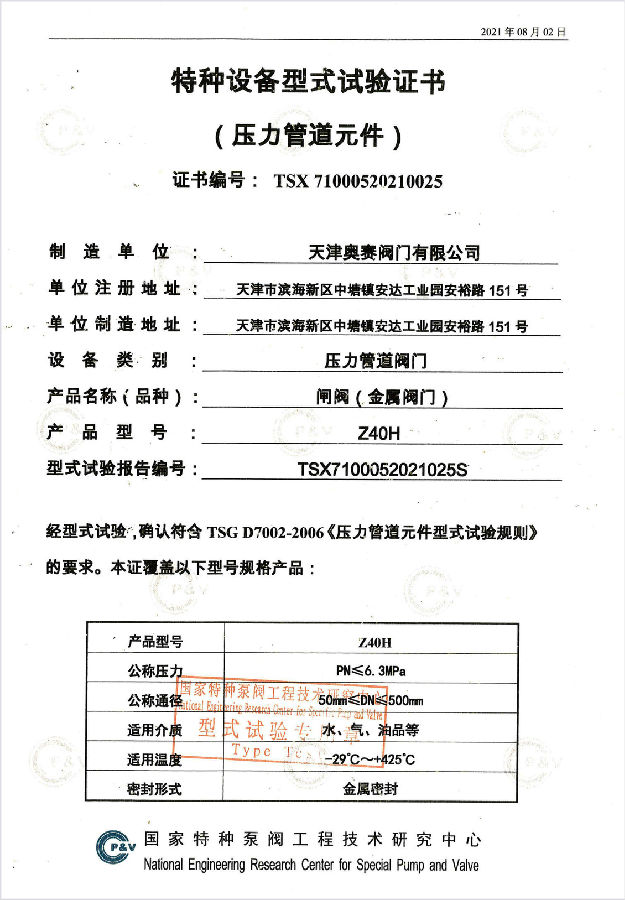 2021年08月02日
特种设备型式试验证书
（压力管道元件）
证书编号： TSX 71000520210025
制造单位： 天津奥赛阀门有限公司
单位注册地址： 天津市滨海新区中塘镇安达工业园安裕路151号
单位制造地址： 天津市滨海新区中塘镇安达工业园安裕路151号
设备类别： 压力管道阀门
产品名称（品种）： 闸阀（金属阀门）
产品型号： Z40H
型式试验报告编号： TSX7100052021025S
经型式试验,确认符合 TSG D7002-2006《压力管道元件型式试验规则》
的要求。本证覆盖以下型号规格产品：
产品型号 Z40H
公称压力 PN≤6.3MPa
国家特种泵阀工程技术研究中心
公称通径 50mm≤DN≤500mm
National Engineering Research Center for Special Pump and Valve
型式试验专用章
适用介质 水、气、油品等
Type Test
适用温度 -29℃～+425℃
密封形式 金属密封
P&V 国家特种泵阀工程技术研究中心
National Engineering Research Center for Special Pump and Valve